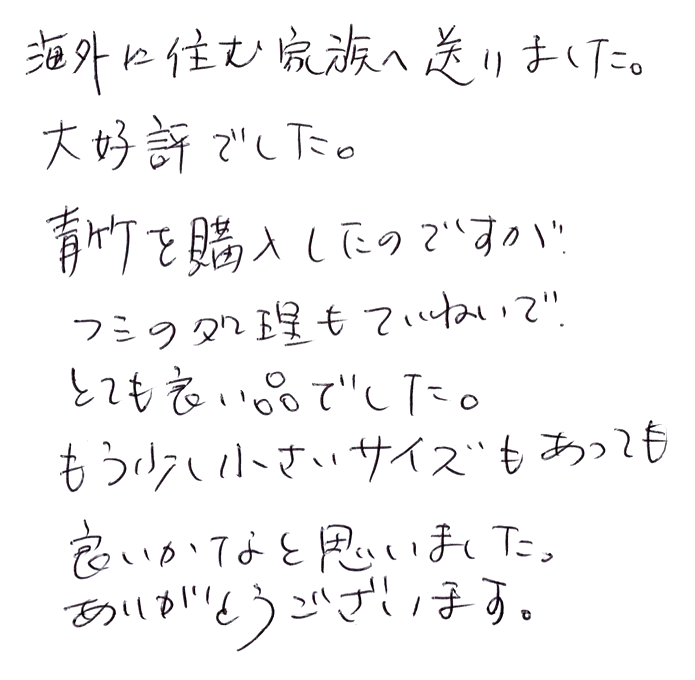 海外に住む家族へ送りました。
大好評でした。
青竹を購入したのですが、
フミの処理もていねいで、
とても良い品でした。
もう少し小さいサイズもあっても
良いかなと思いました。
ありがとうございます。